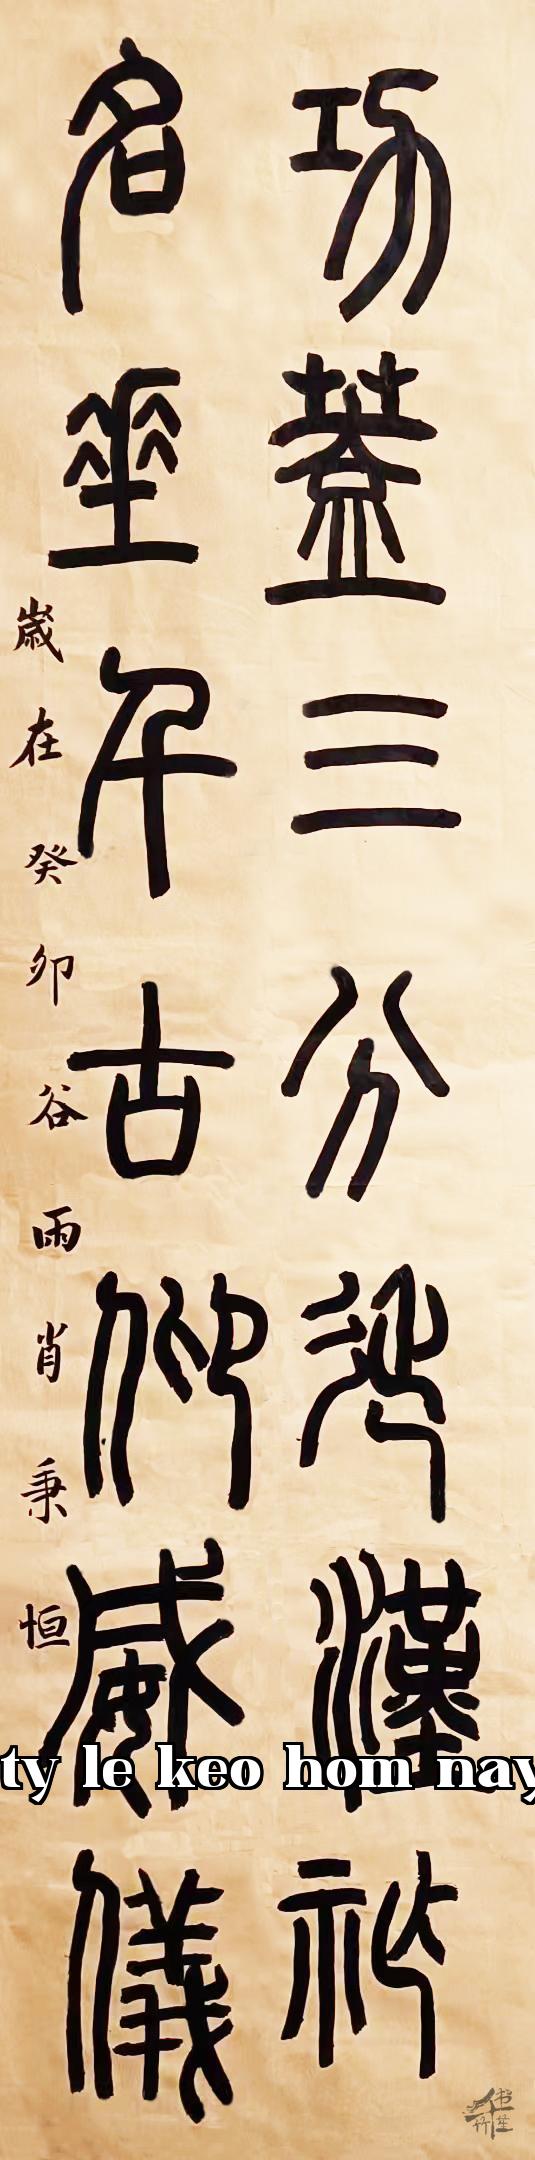 功蓋三分延漢祚
名垂千古仰威儀
歲在癸卯谷雨肖秉恒
ty le keo hom nay